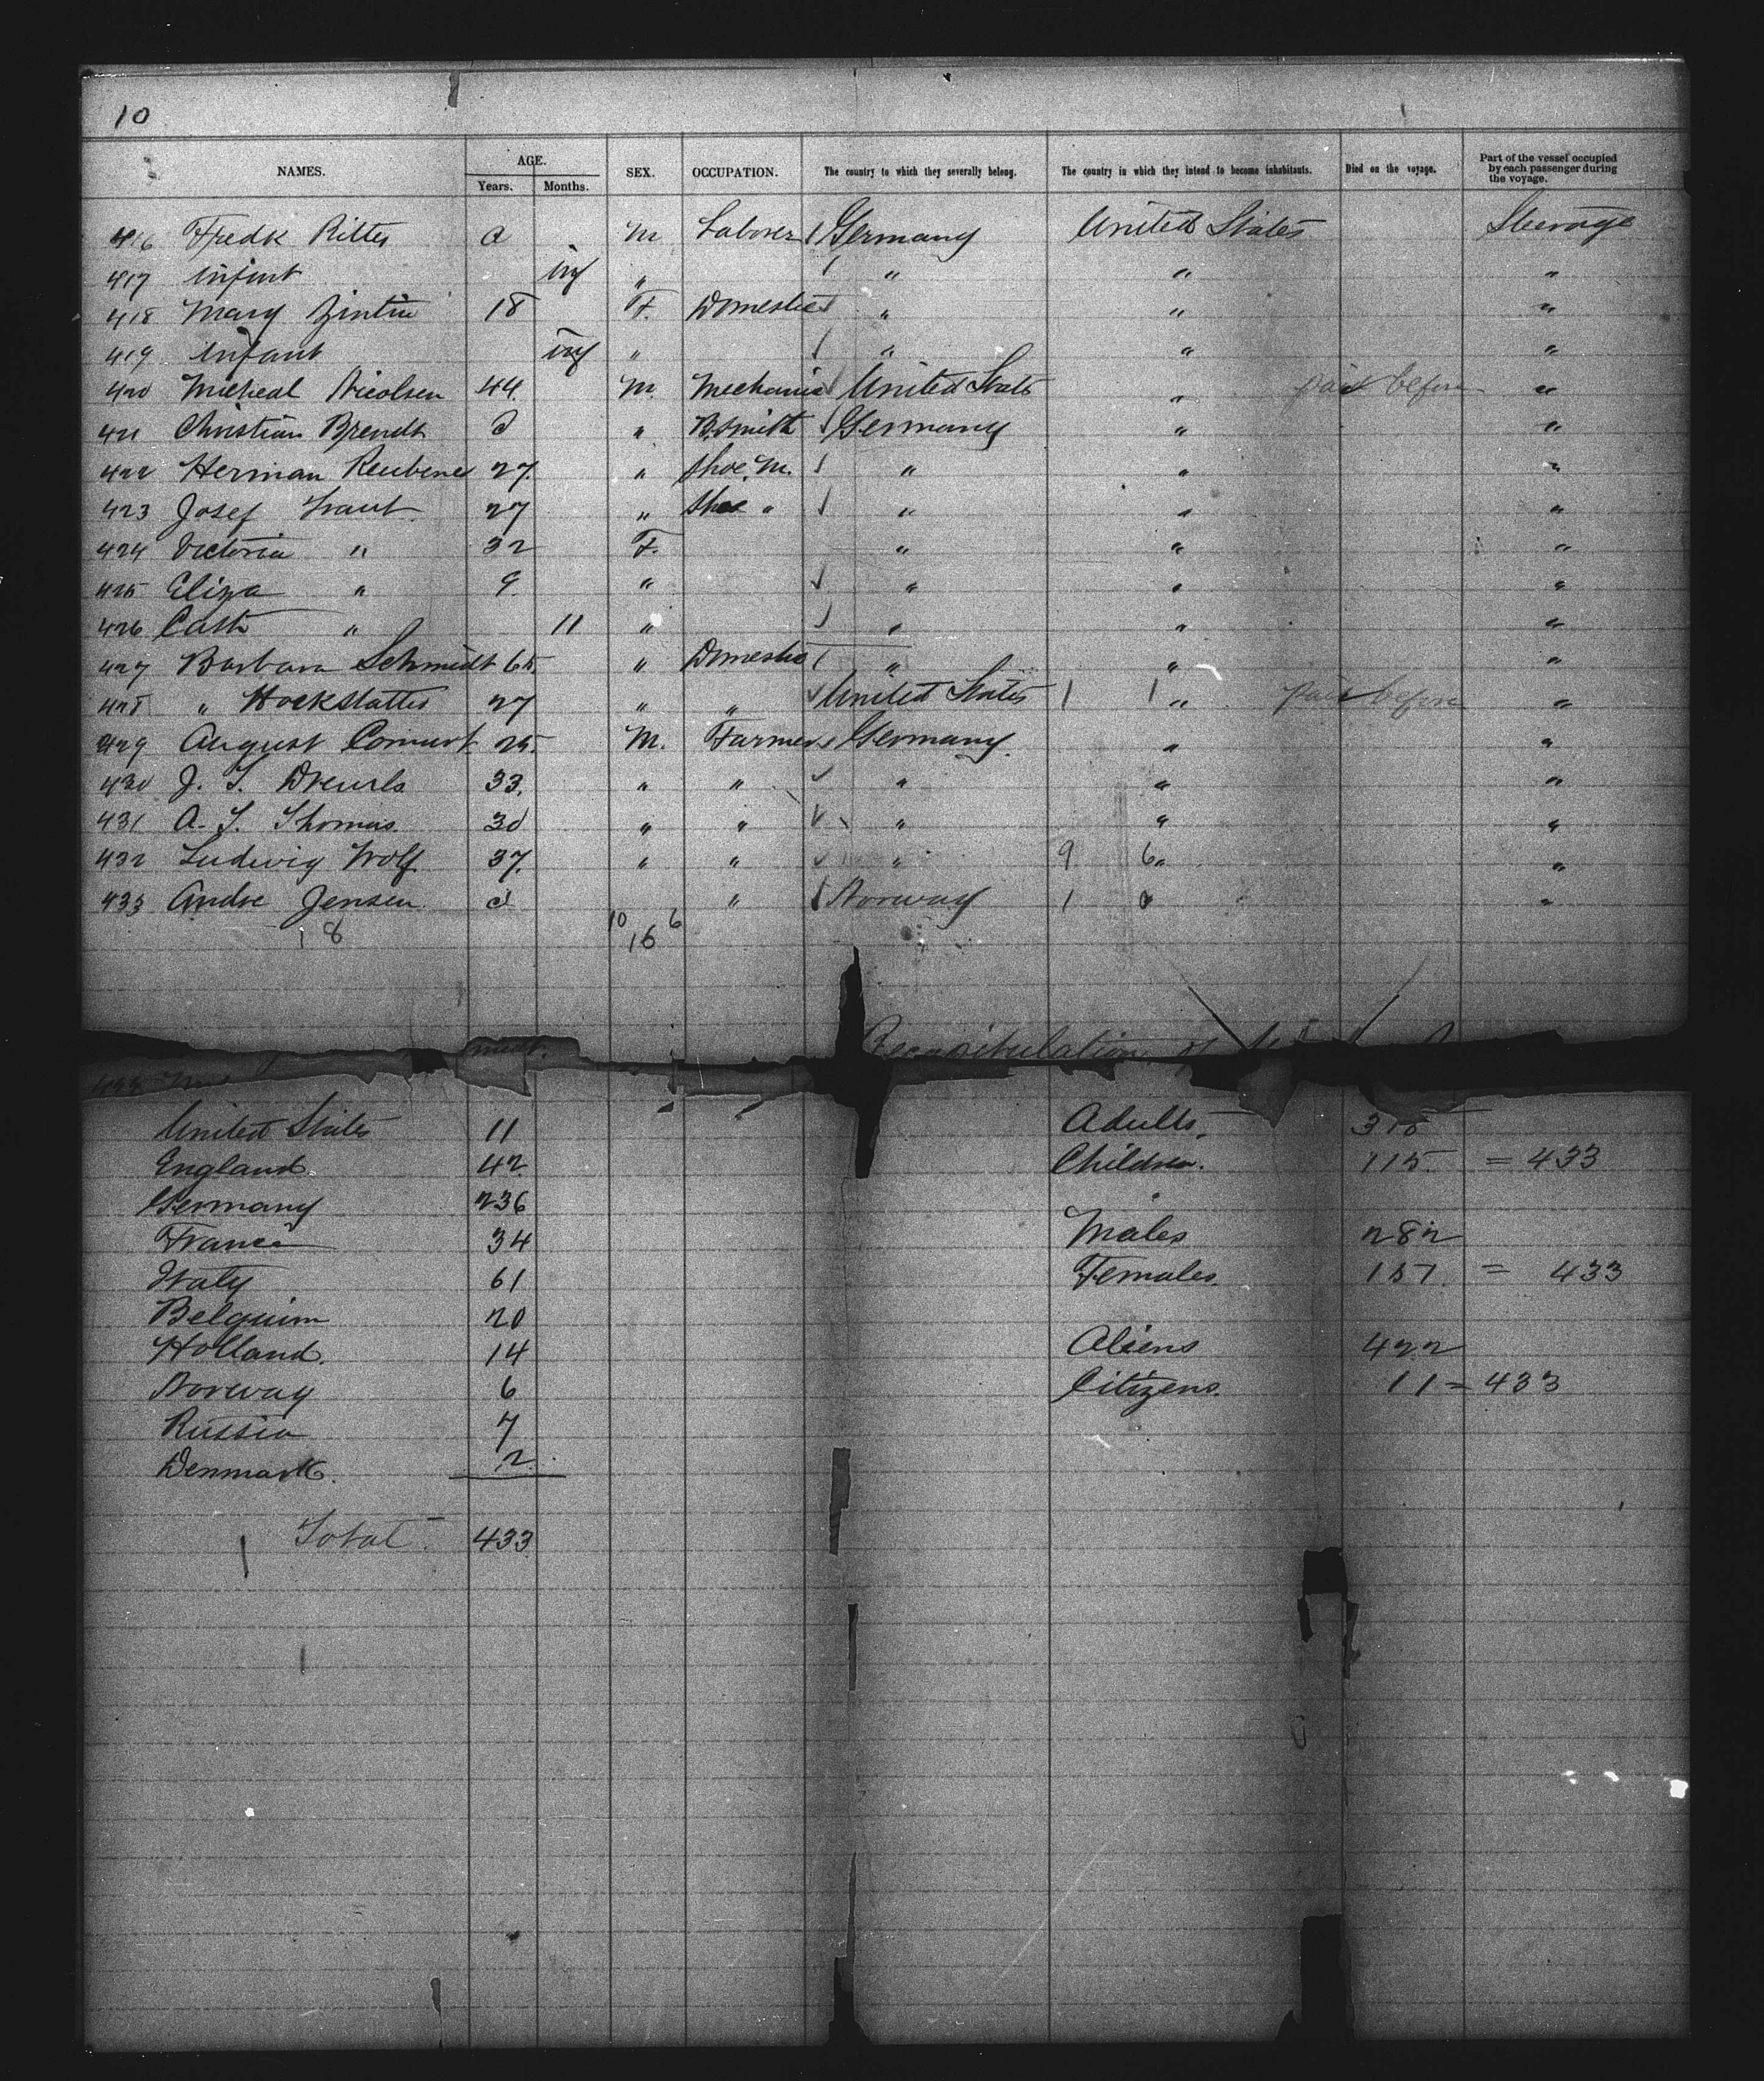 10
NAMES. AGE. Years. Months. SEX. OCCUPATION. The country to which they severally belong. The country in which they intend to become inhabitants. Died on the voyage. Part of the vessel occupied by each passenger during the voyage.
416 Fredk Ritter a M Laborer Germany United States Steerage
417 Infant inf " " " "
418 Mary 18 F. Domestic " " "
419 Infant inf " " " "
420 Micheal Nicolsen 44. M. Mechanic United States " paid before "
421 Christian Brendt a " B.smith Germany " "
422 Herman 27. " Shoe M. " " "
423 Josef 27 " Shoe " " " "
424 Victoria " 32 F. " " "
425 Eliza " 9. " " " "
426 Cath " 11 " " " "
427 Barbara Schmidt 65. " Domestic " " "
428 " Hockstatter 27 " " United States 1 1 " paid before "
429 August 25. M. Farmer Germany. " "
430 J. T. 33. " " " " "
431 A. T. Thomas. 30 " " " " "
432 Ludwig Wolf 37. " " " 9 6 " "
433 Andre Jensen a " Norway 1 "
18 10 6
16
Recapitulation of
United States 11 Adults.
England. 42 Children. 115 = 433
Germany 236
France 34 Males 282
Italy 61 Females. 151. = 433
Belguim 20
Holland. 14 Aliens 422
Norway 6 Citizens. 11 = 433
Russia 7
Denmark. 2.
Total 433